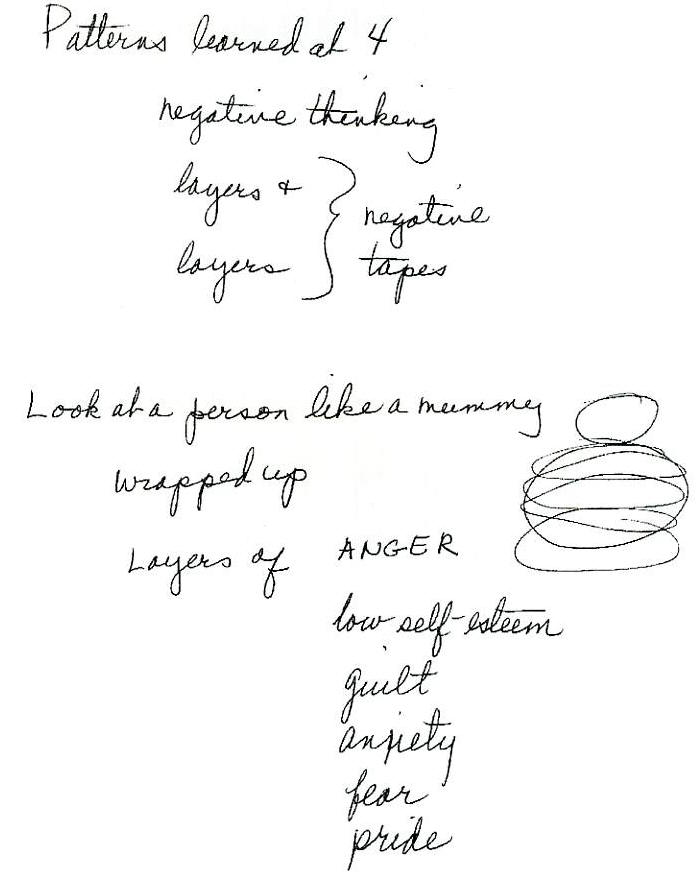 Patterns learned at 4
negative thinking
layers +
layers
negative
tapes
Look at a person like a mummy
wrapped up
Layers of ANGER
low self-esteem
guilt
anxiety
fear
pride